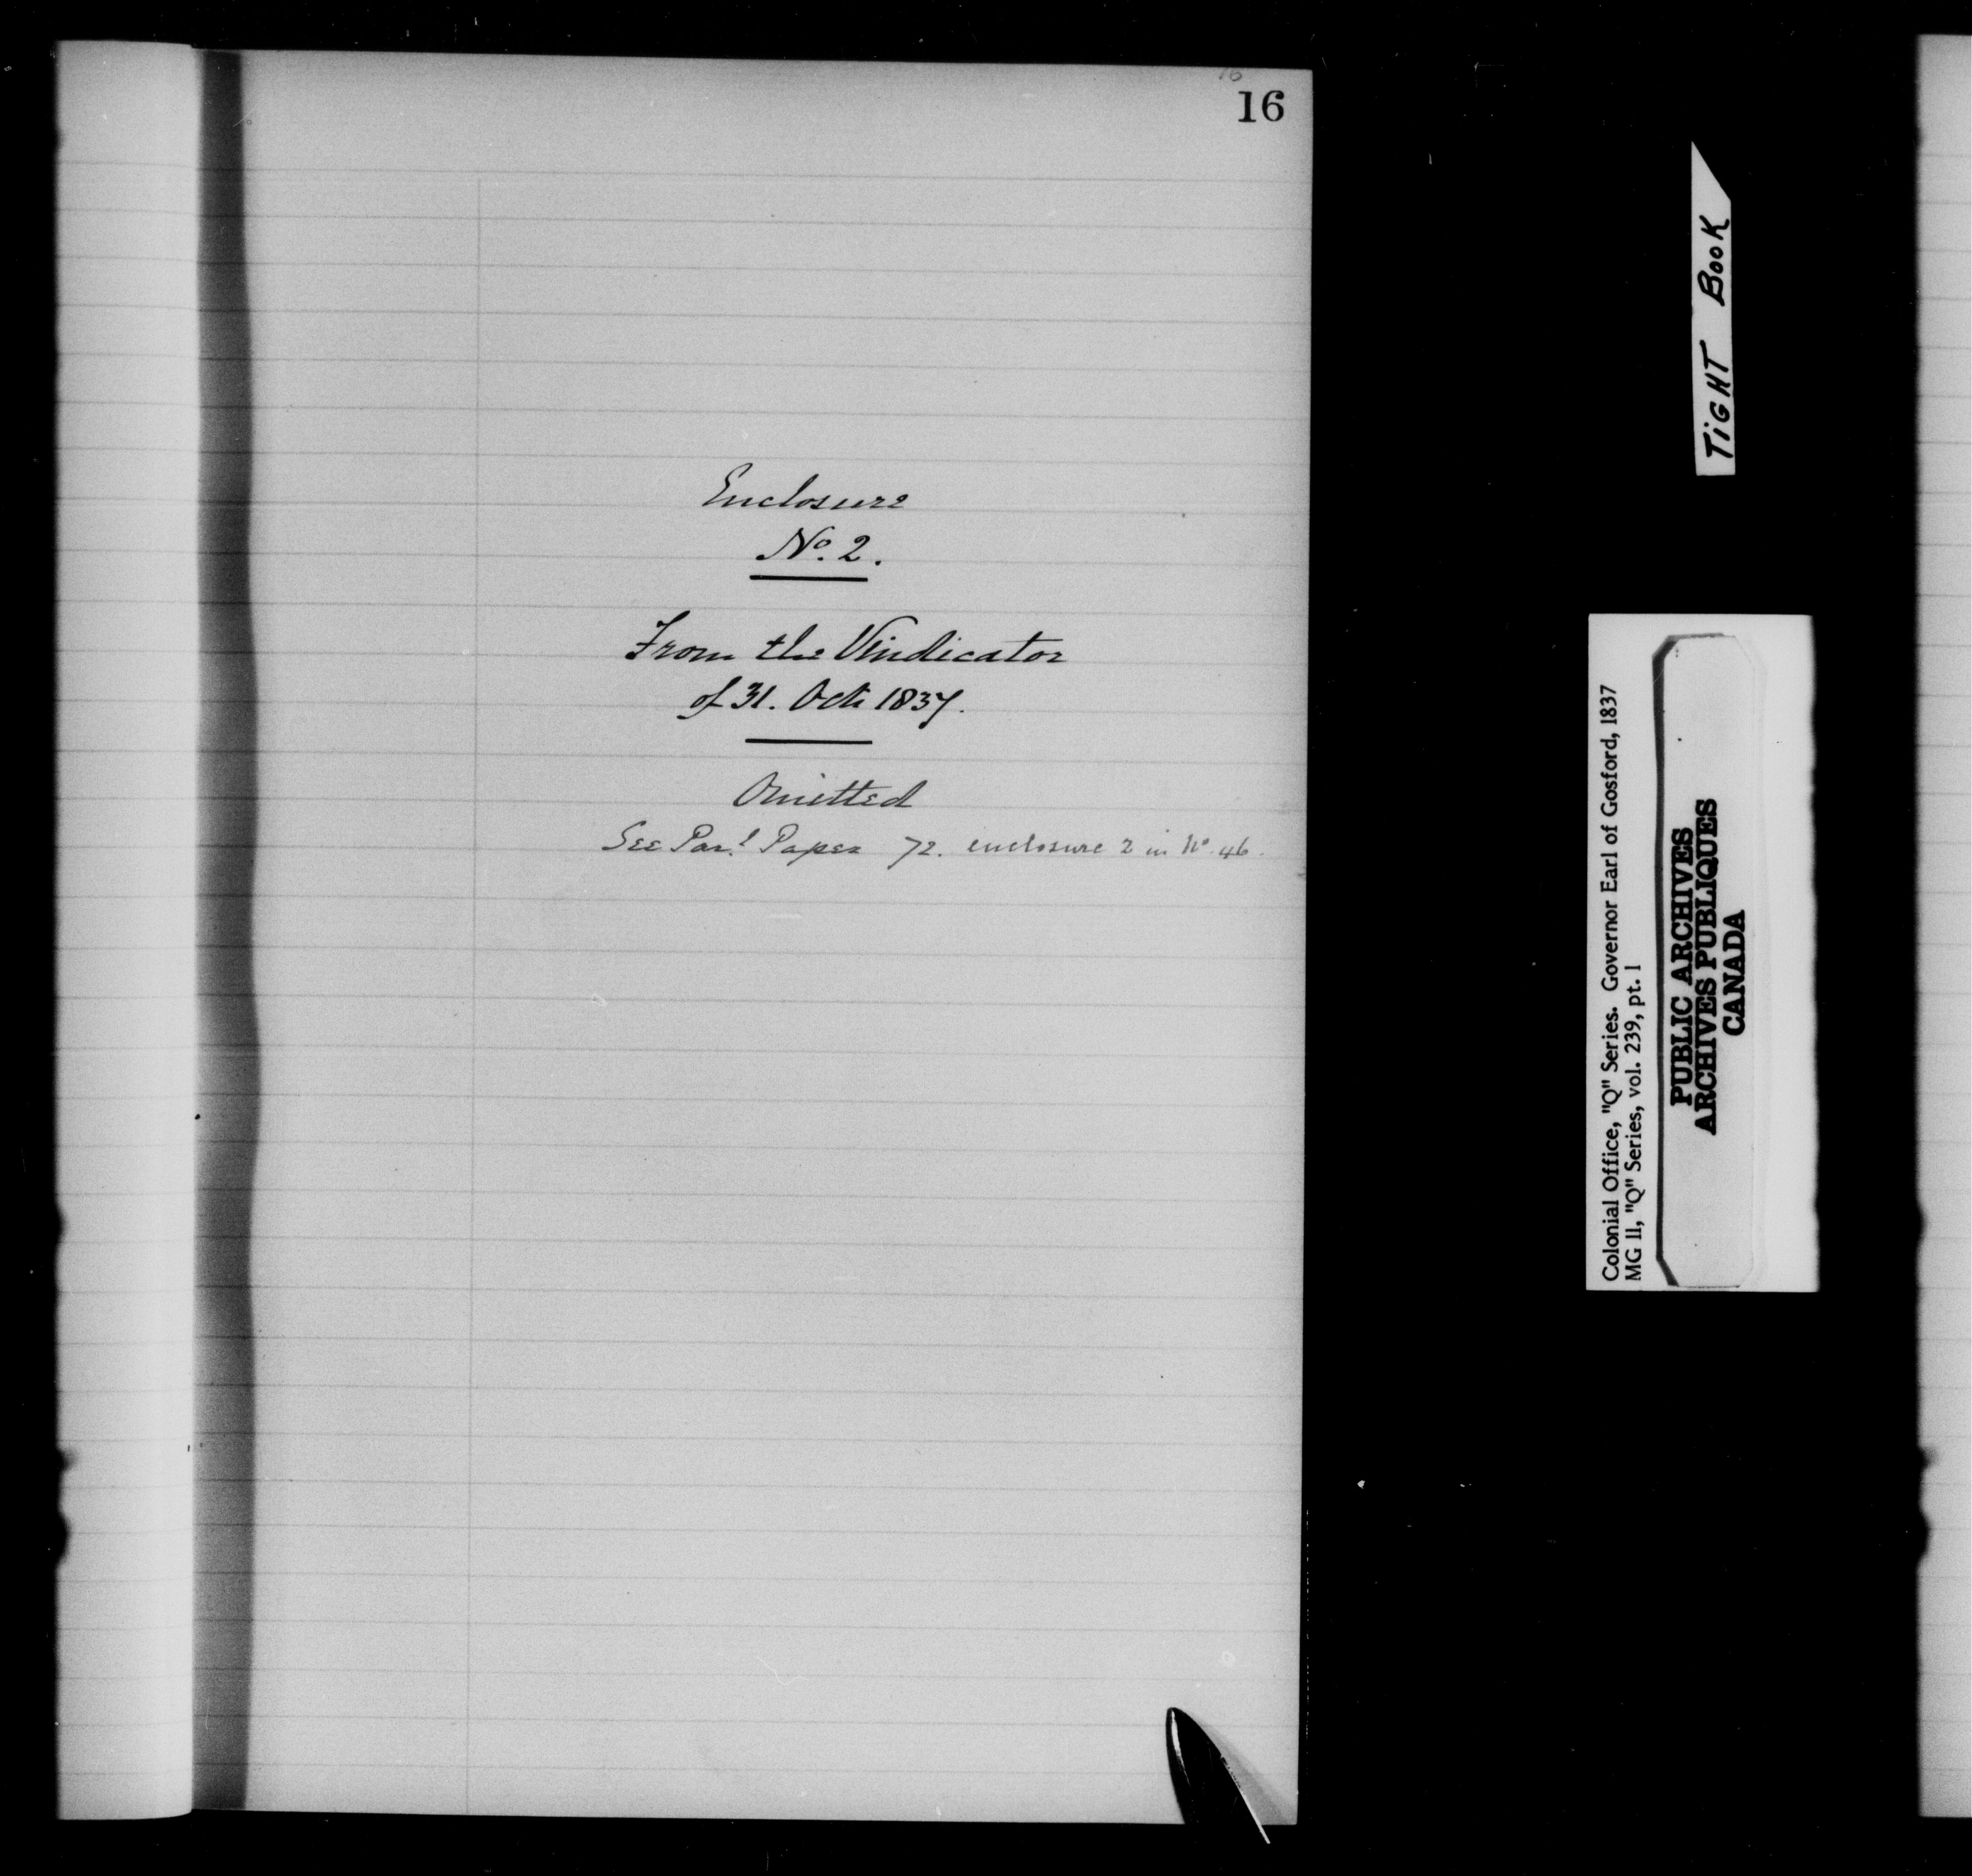 16
16
Enclosure
No. 2.
From the Vindicator
of 31. Oct. 1837.
Omitted
See Parl Paper 72. enclosure 2 in No. 46.
TiGHT BooK
Colonial Office, "Q" Series. Governor Earl of Gosford, 1837
MG 11, "Q" Series, vol. 239, pt. 1
PUBLIC ARCHIVES
ARCHIVES PUBLIQUES
CANADA